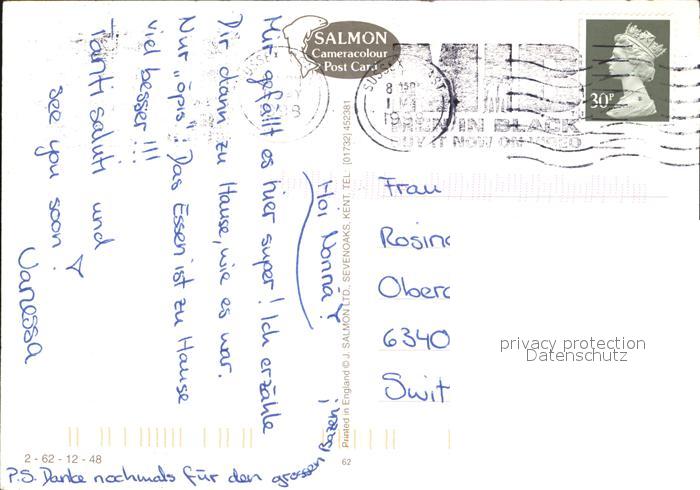 Hoi Nonna!
Mir gefällt es hier super! Ich erzähle
Dir dann zu Hause, wie es war.
Nur „öpis": Das Essen ist zu Hause
viel besser!!!
Tanti saluti und
see you soon!
Vanessa
P.S. Danke nochmals für den grossen Batzen!
SALMON
Cameracolour
Post Card
Printed in England © J. SALMON LTD., SEVENOAKS, KENT. TEL [01732] 452381
2 - 62 - 12 - 48
62
30P
MIB
MEN IN BLACK
BUY IT NOW ON VIDEO
Frau
Rosin
Ober
6340
Swit
privacy protection
Datenschutz